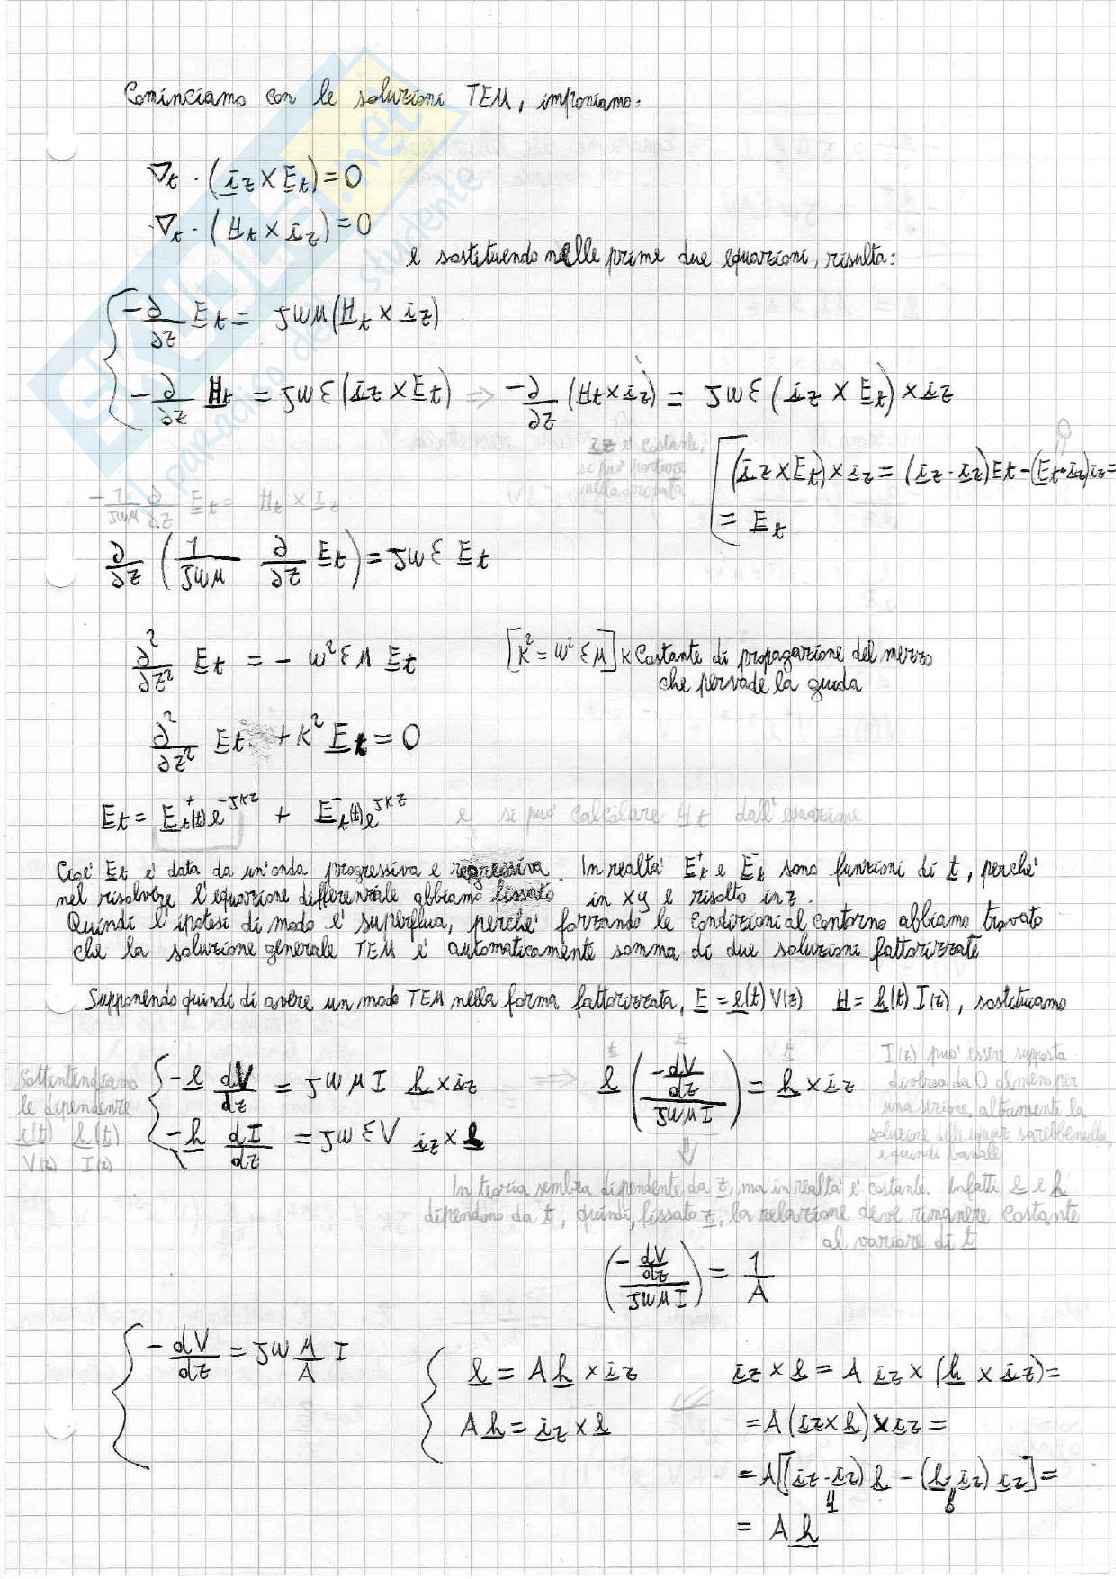 Cominciamo con le soluzioni TEM, imponiamo:
∇t · (iz × Et) = 0
∇t · (Ht × iz) = 0
e sostituendo nelle prime due equazioni, risulta:
-∂/∂z Et = jωμ (Ht × iz)
-∂/∂z Ht = jωε (iz × Et) ⇒ -∂/∂z (Ht × iz) = jωε (iz × Et) × iz
iz è costante,
si può portare
nella derivata
(iz × Et) × iz = (iz · iz) Et - (Et · iz) iz =
0
= Et
-1/jωμ ∂/∂z Et = Ht × iz
∂/∂z (1/jωμ ∂/∂z Et) = jωε Et
∂²/∂z² Et = - ω² εμ Et [K² = ω² εμ] K Costante di propagazione del mezzo
che pervade la guida
∂²/∂z² Et + K² Et = 0
Et = Et⁺(t) e^-jKz + Et⁻(t) e^jKz e si può calcolare Ht dall'equazione
Cioè Et è data da un'onda progressiva e regressiva. In realtà Et⁺ e Et⁻ sono funzioni di t, perché
nel risolvere l'equazione differenziale abbiamo fissato in xy e risolto in z.
Quindi l'ipotesi di modo è superflua, perché forzando le condizioni al contorno abbiamo trovato
che la soluzione generale TEM è automaticamente somma di due soluzioni fattorizzate
Supponendo quindi di avere un modo TEM nella forma fattorizzata, E = e(t) V(z) H = h(t) I(z), sostituiamo
Sottintendiamo
le dipendenze
e(t) h(t)
V(z) I(z)
-e dV/dz = jωμ I h × iz ⇒ e (-dV/dz / jωμ I) = h × iz
-h dI/dz = jωε V iz × e
I(z) può essere supposta
diversa da 0 almeno per
una sezione, altrimenti la
soluzione sarebbe nulla
e quindi banale
In teoria sembra dipendente da z, ma in realtà è costante. Infatti e e h
dipendono da t, quindi, fissato z, la relazione deve rimanere costante
al variare di t
(-dV/dz / jωμ I) = 1/A
-dV/dz = jω μ/A I
e = A h × iz
A h = iz × e
iz × e = A iz × (h × iz) =
= A (iz × h) × iz =
= A [(iz · iz) h - (h · iz) iz] =
1 0
= A h